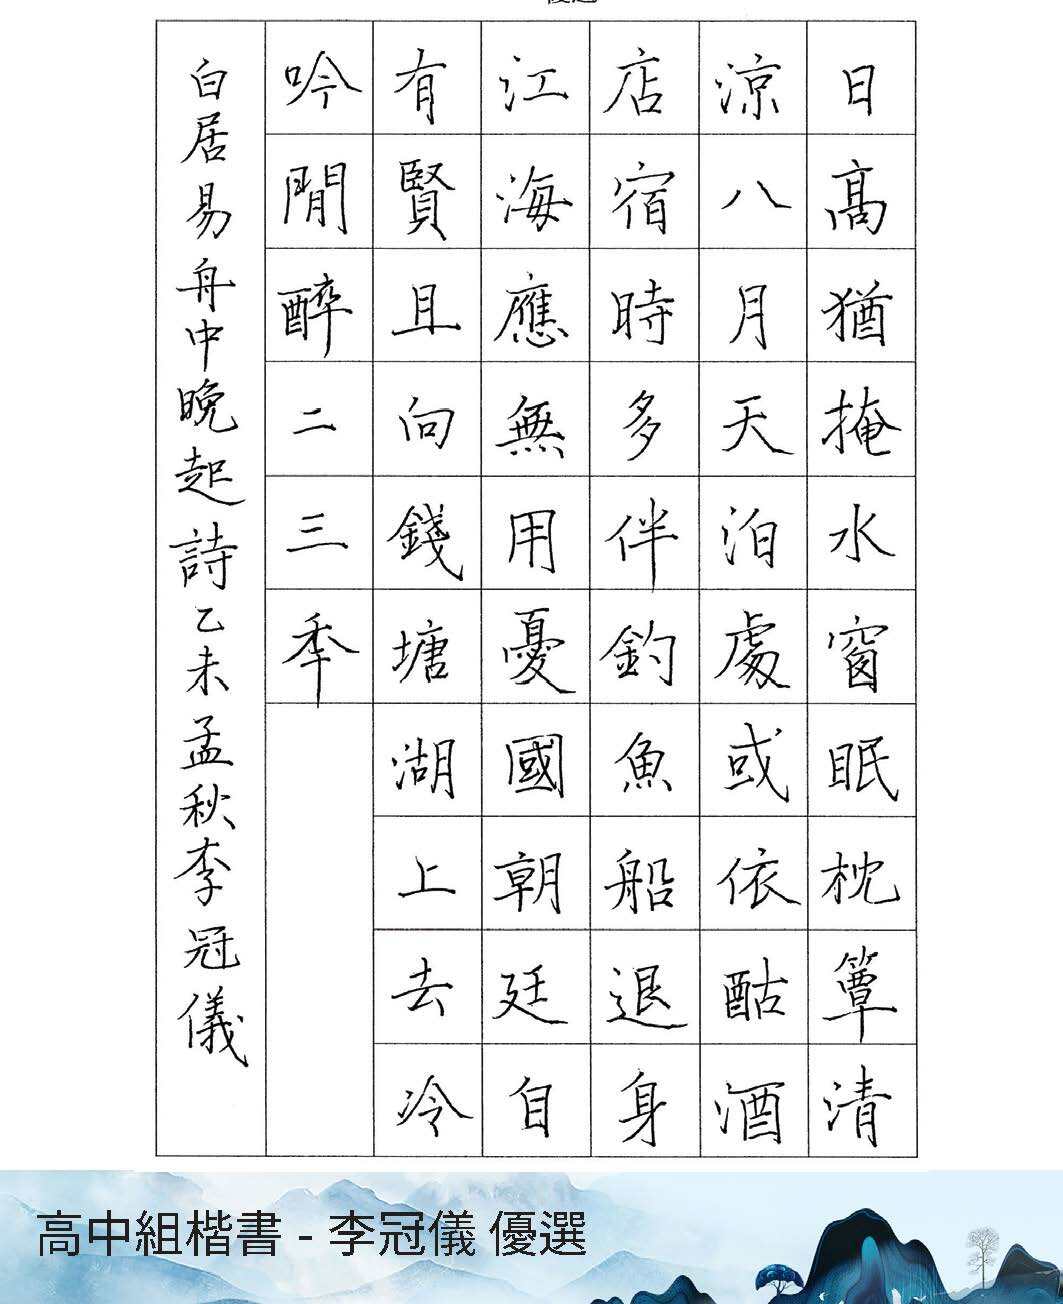 日高猶掩水窗眠枕簟清
涼八月天泊處或依酤酒
店宿時多伴釣魚船退身
江海應無用憂國朝廷自
有賢且向錢塘湖上去冷
吟閒醉二三季
白居易舟中晚起詩乙未孟秋李冠儀
高中組楷書 - 李冠儀 優選